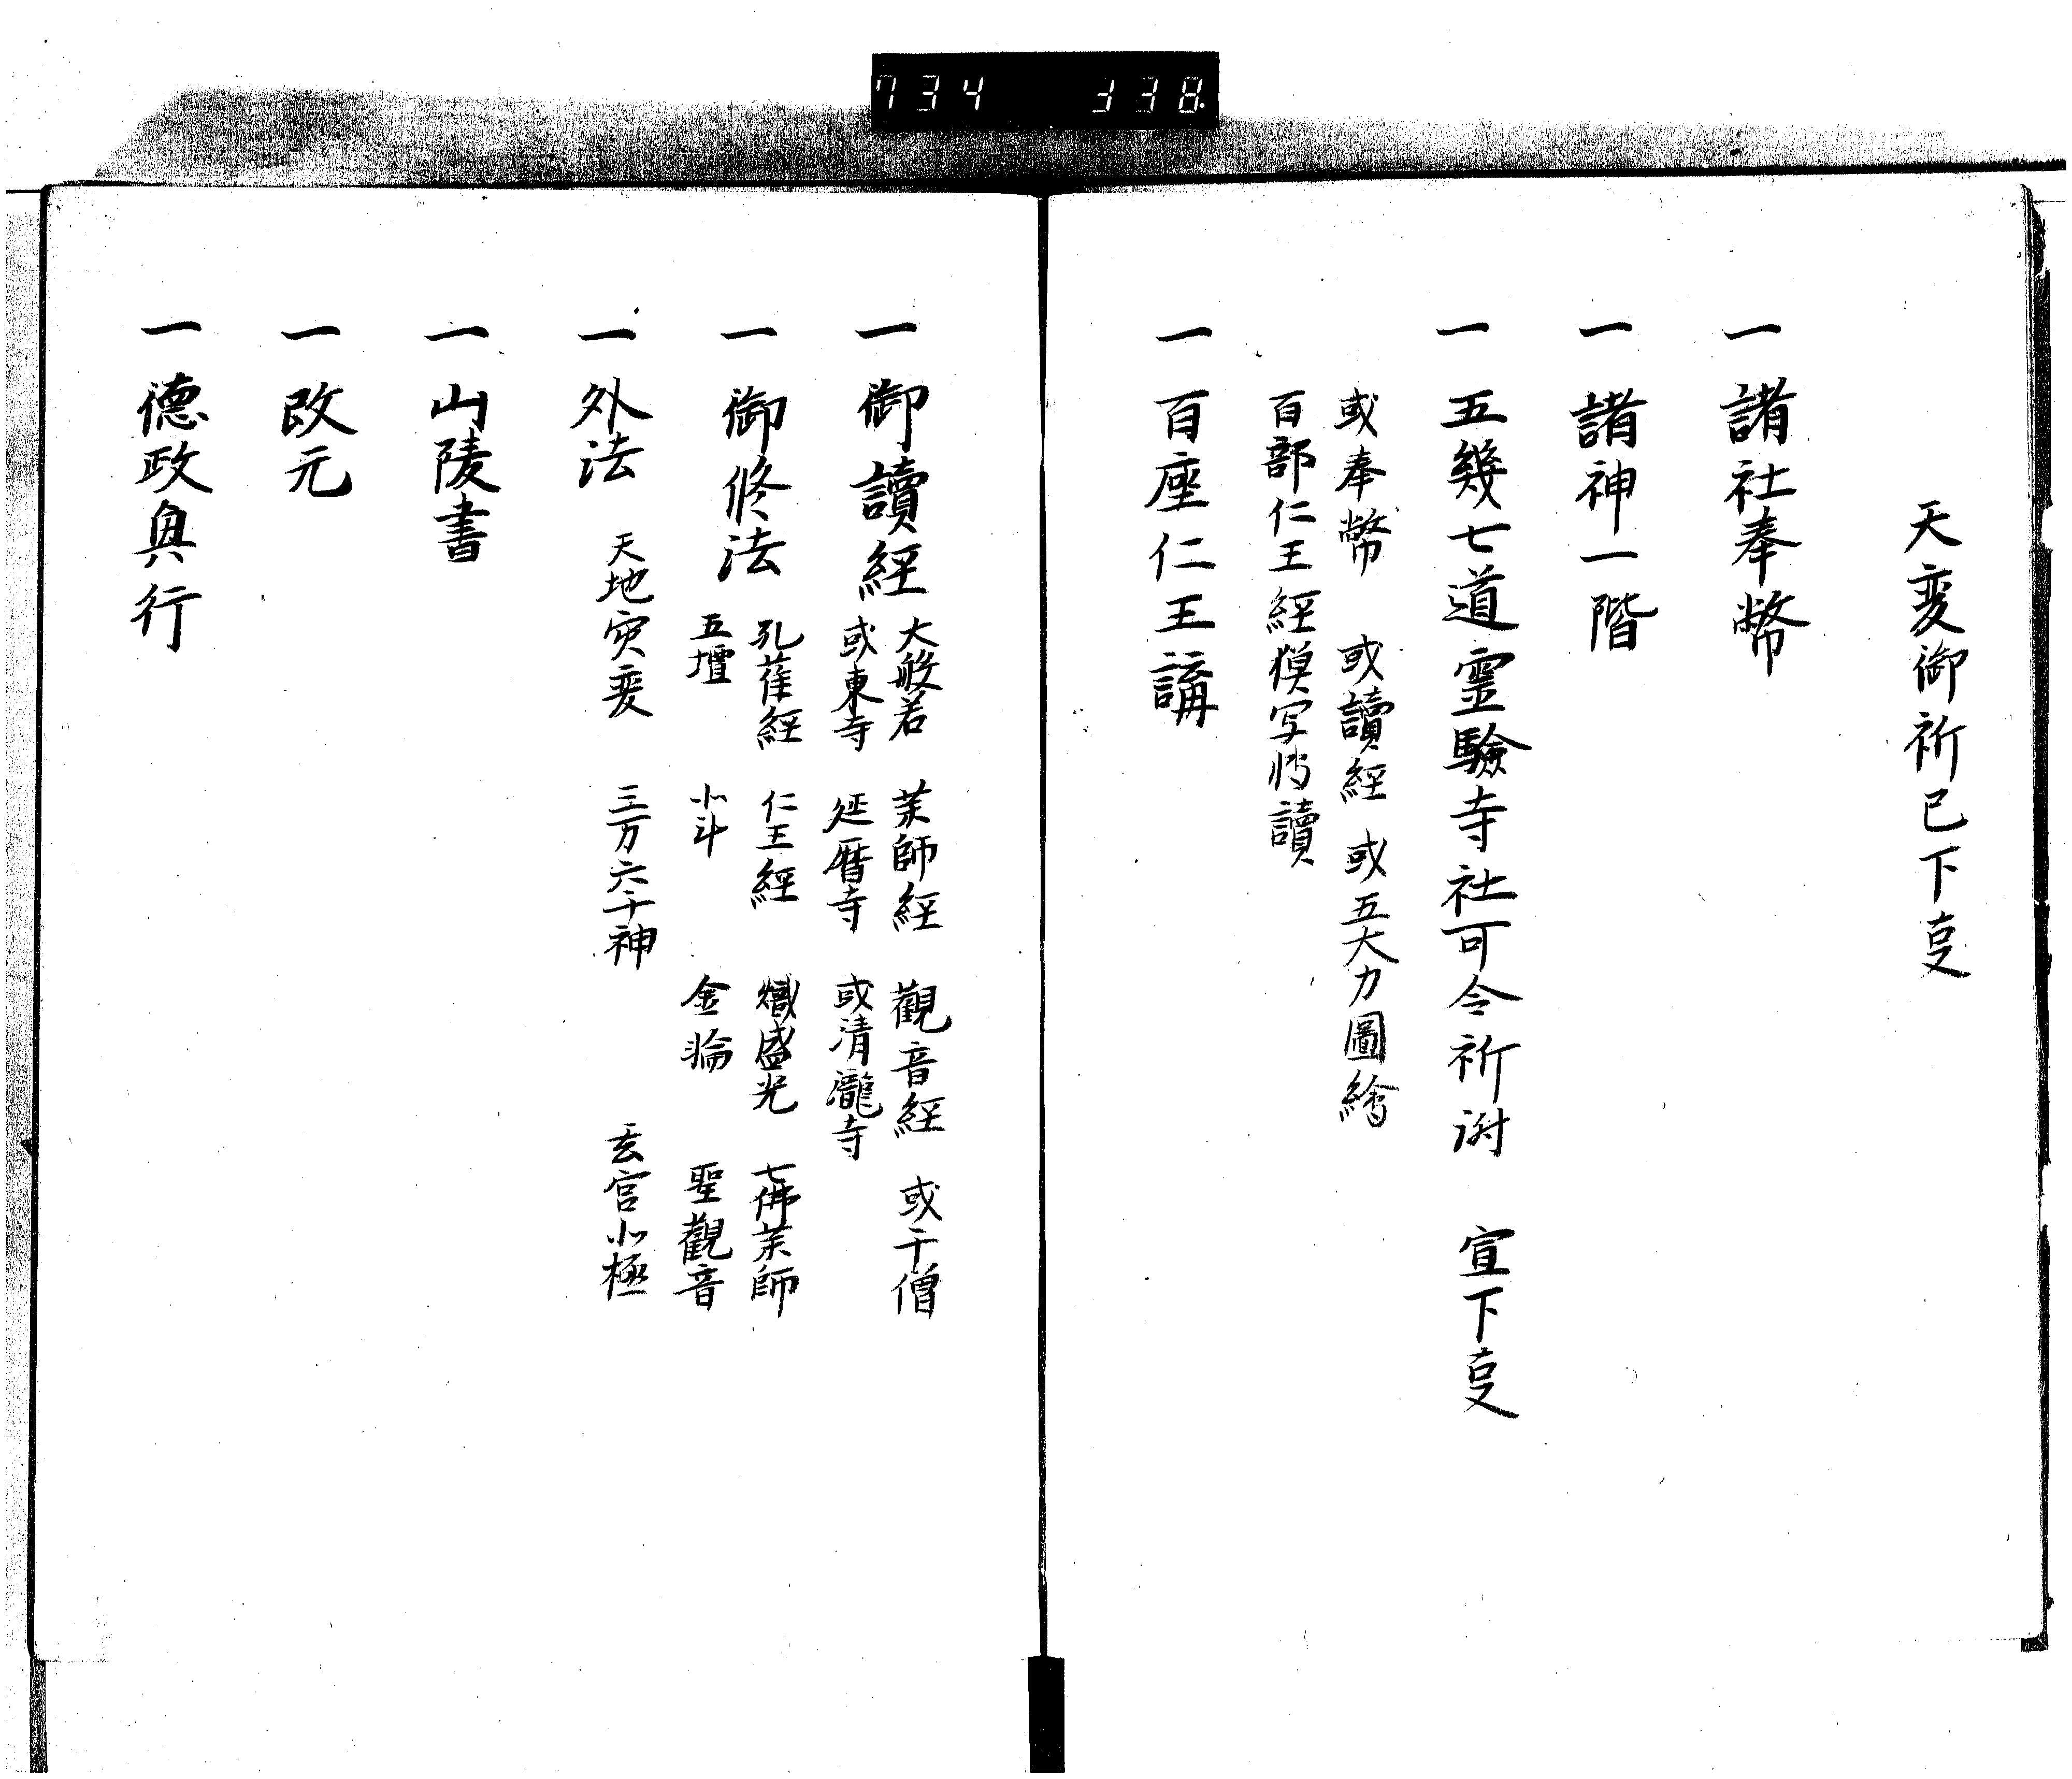 734 338
天変御祈已下叓
一 諸社奉幣
一 諸神一階
一 五幾七道霊驗寺社可令祈謝 宣下叓
或奉幣 或讀經 或五大力圖繪
百部仁王經摸写轉讀
一 百座仁王講
一 御讀經 大般若 茉師經 觀音經 或千僧
或東寺 延暦寺 或清瀧寺
一 御修法 孔雀經 仁王經 熾盛光 七佛茉師
五壇 北斗 金輪 聖觀音
一 外法 天地災変 三万六千神 玄宮北極
一 山陵書
一 改元
一 德政興行